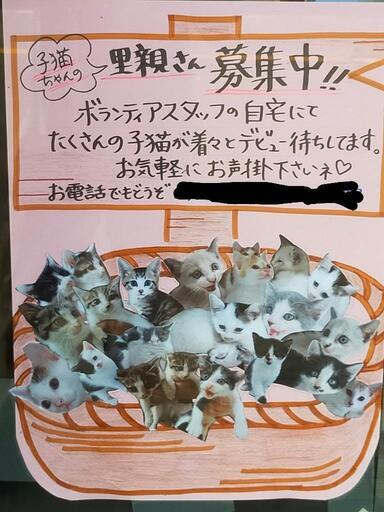 子猫
ちゃんの
里親さん 募集中!!
ボランティアスタッフの自宅にて
たくさんの子猫が着々とデビュー待ちしてます。
お気軽に お声掛下さいネ♡
お電話でもどうぞ